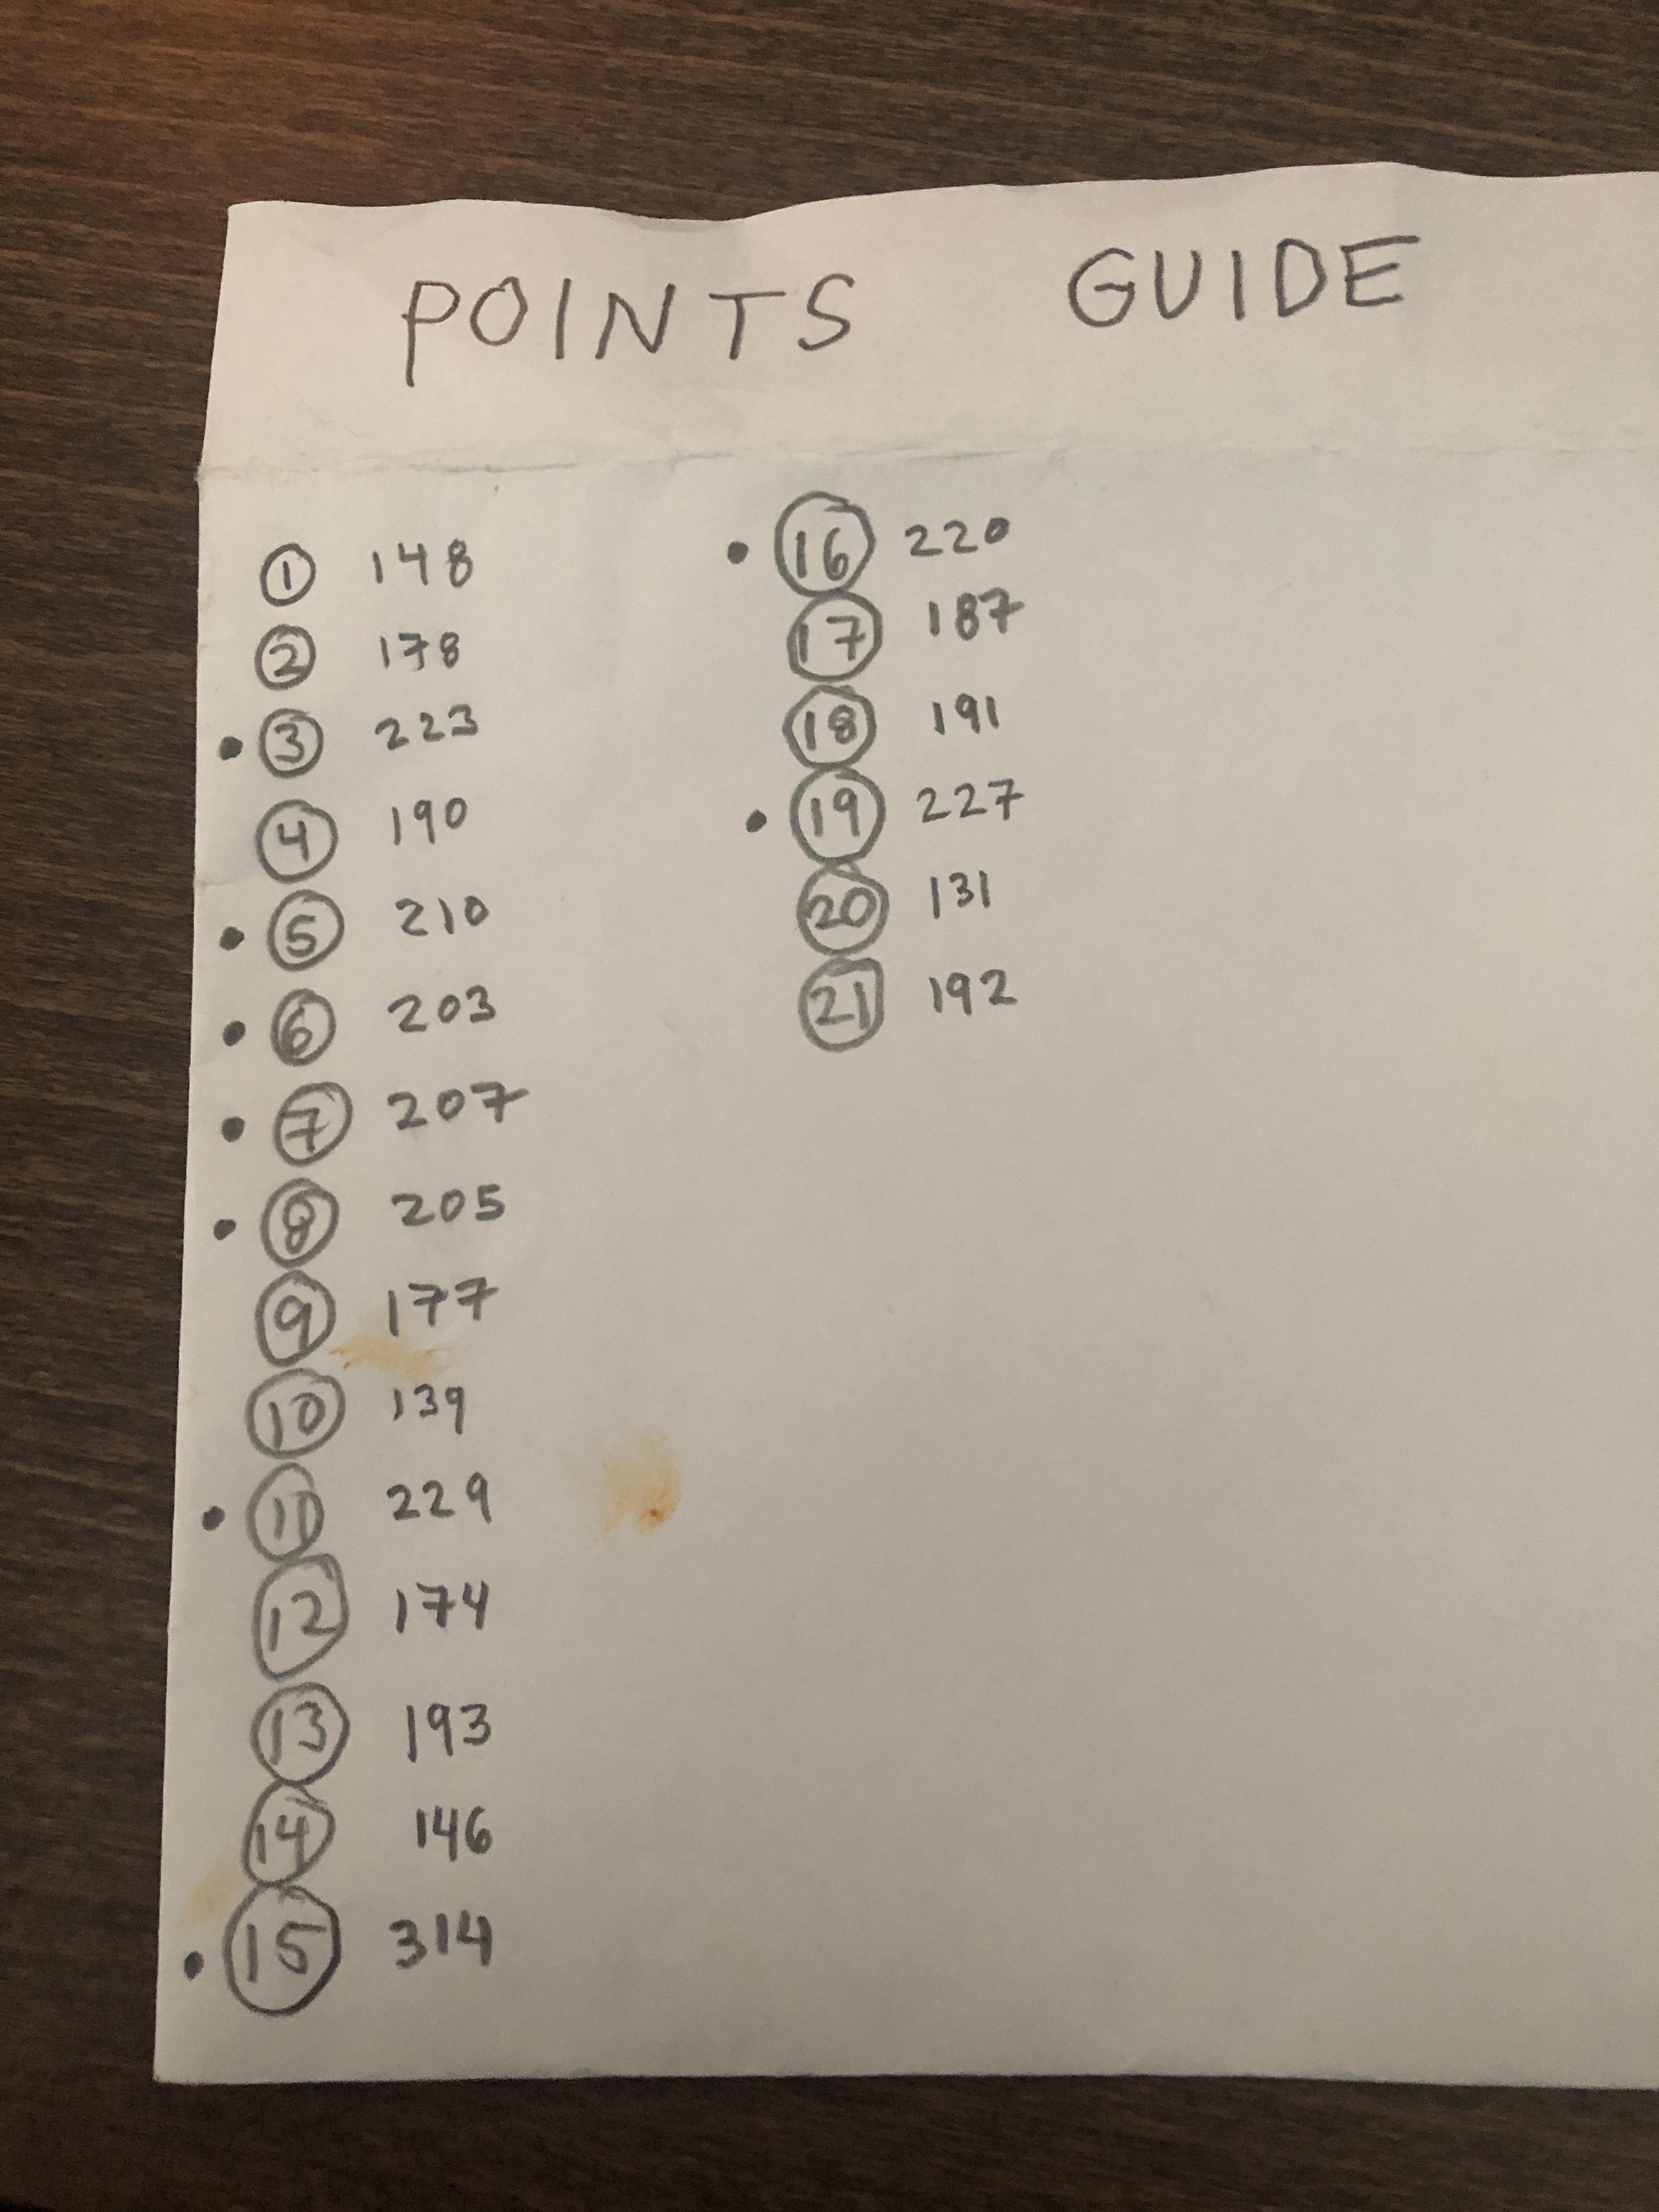 POINTS GUIDE
① 148
② 178
• ③ 223
④ 190
• ⑤ 210
• ⑥ 203
• ⑦ 207
• ⑧ 205
⑨ 177
⑩ 139
• ⑪ 229
⑫ 174
⑬ 193
⑭ 146
• ⑮ 314
• ⑯ 220
⑰ 187
⑱ 191
• ⑲ 227
⑳ 131
㉑ 192